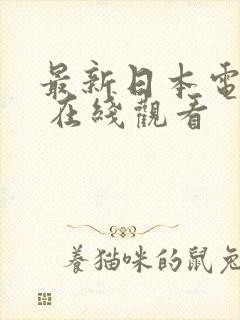 最新日本電
在綫觀看
養猫咪的鼠兔